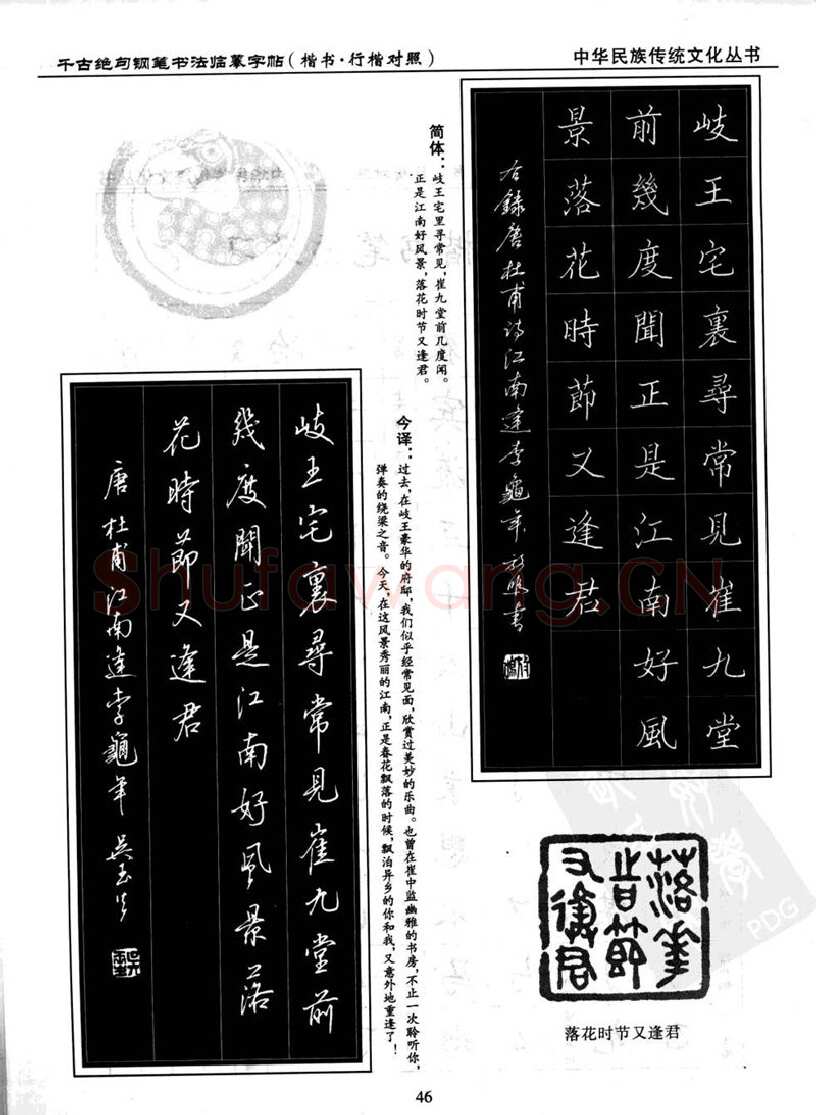 千古绝句钢笔书法临摹字帖(楷书·行楷对照)
中华民族传统文化丛书
岐王宅裏尋常見崔九堂
前幾度聞正是江南好風
景落花時節又逢君
右錄唐杜甫诗江南逢李龜年
简体:岐王宅里寻常见,崔九堂前几度闻。
正是江南好风景,落花时节又逢君。
今译:"过去,在岐王豪华的府邸,我们似乎经常见面,欣赏过美妙的乐曲。也曾在崔中监幽雅的书房,不止一次聆听你,
弹奏的绕梁之音。今天,在这风景秀丽的江南,正是春花飘落的时候,飘泊异乡的你和我,又意外地重逢了!
岐王宅裏尋常見崔九堂前
幾度聞正是江南好風景落
花時節又逢君
唐杜甫江南逢李龜年
落花
时節
又逢君
落花时节又逢君
46
Shufawang.CN
PDG